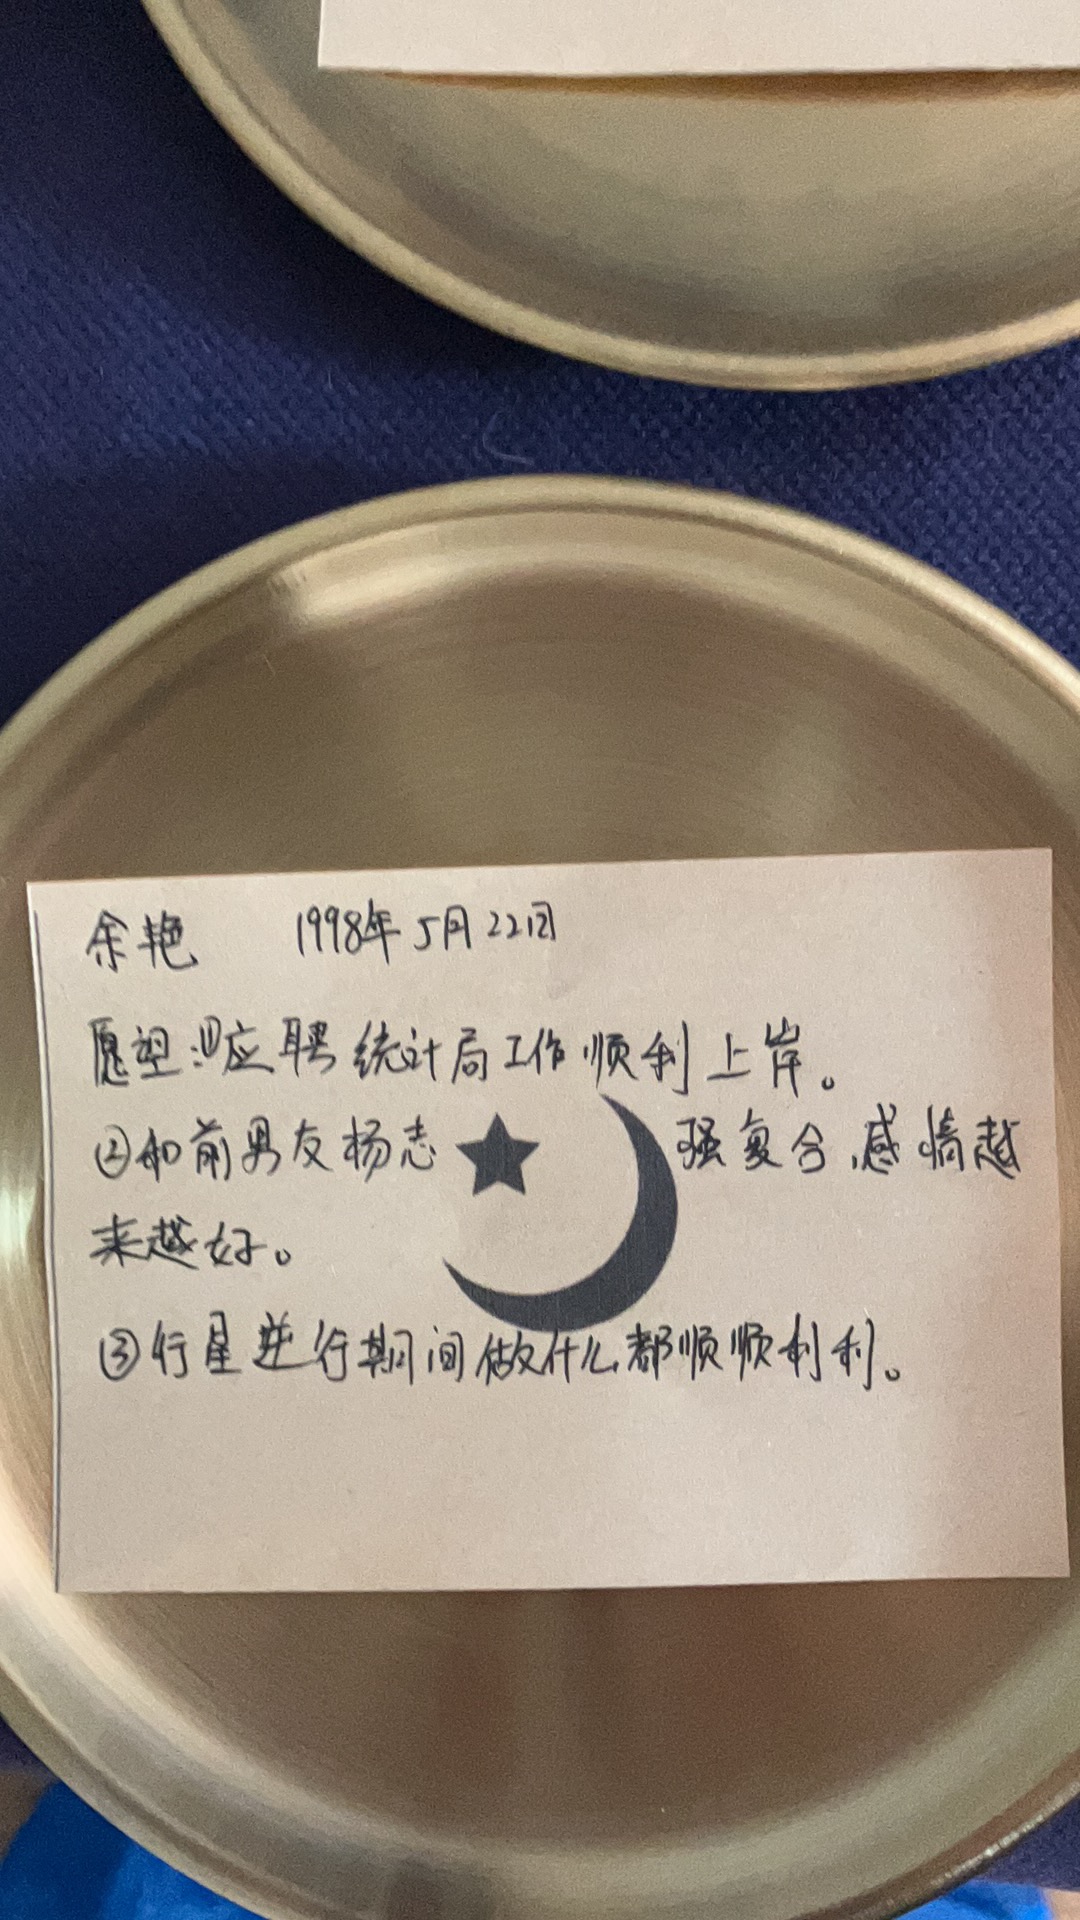 余艳 1998年5月22日
愿望:①应聘统计局工作顺利上岸。
②和前男友杨志强复合,感情越
来越好。
③行星逆行期间做什么都顺顺利利。